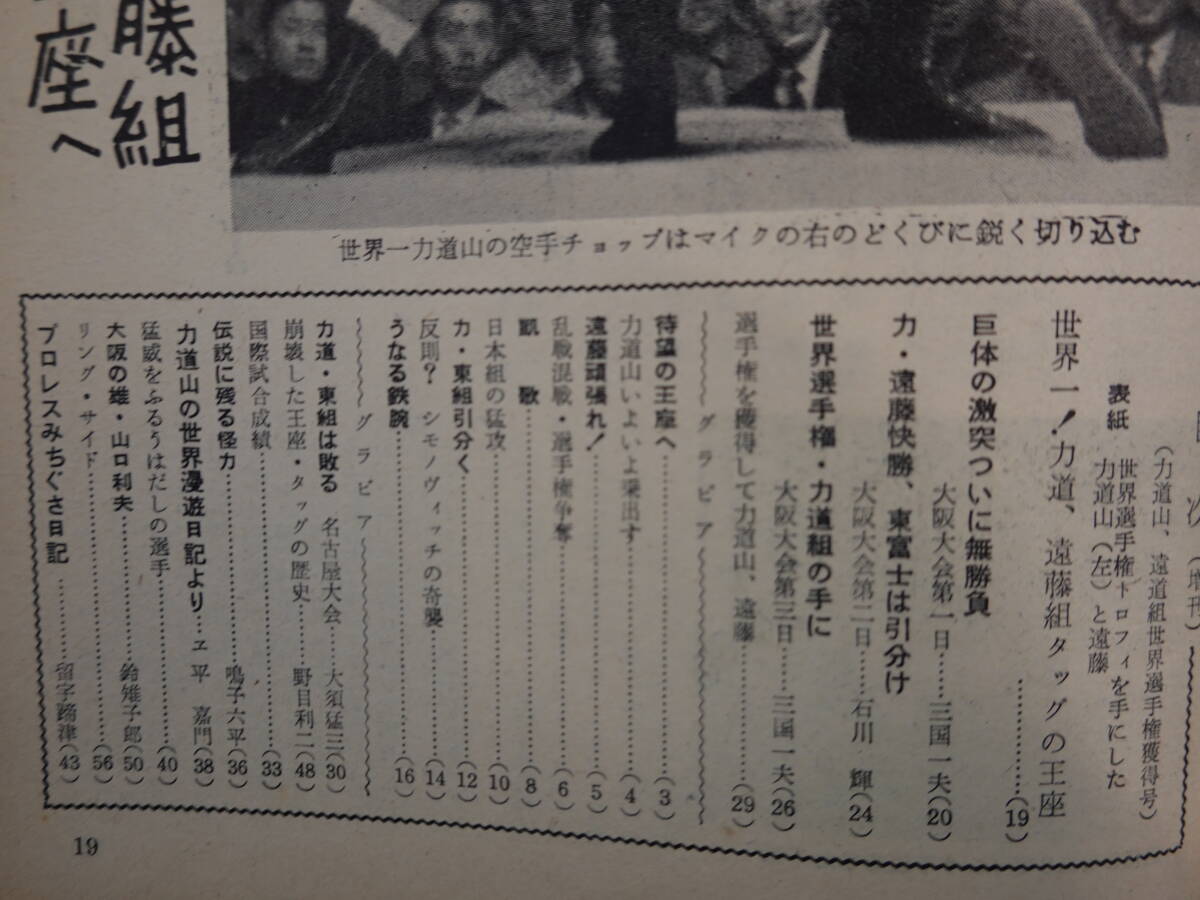 藤組
座へ
世界一力道山の空手チョップはマイクの右のどくびに鋭く切り込む
次（増刊）
（力道山、遠道組世界選手権獲得号）
表紙　世界選手権トロフィを手にした
力道山（左）と遠藤
世界一！力道、遠藤組タッグの王座
…………(19)
巨体の激突ついに無勝負
大阪大会第一日……三国一夫(20)
力・遠藤快勝、東富士は引分け
大阪大会第二日……石川　輝(24)
世界選手権・力道組の手に
大阪大会第三日……三国一夫(26)
選手権を獲得して力道山、遠藤……(29)
～～～グラビア～～～
待望の王座へ……(3)
力道山いよいよ乗出す……(4)
遠藤頑張れ！……(5)
乱戦混戦・選手権争奪……(6)
凱　歌……(8)
日本組の猛攻……(10)
力・東組引分く……(12)
反則？　シモノヴィッチの奇襲……(14)
うなる鉄腕……(16)
～～～グラビア～～～
力道・東組は敗る　名古屋大会……大須猛三(30)
崩壊した王座・タッグの歴史……野目利二(48)
国際試合成績……(33)
伝説に残る怪力……鳴子六平(36)
力道山の世界漫遊日記より……ヱ平　嘉門(38)
猛威をふるうはだしの選手……(40)
大阪の雄・山口利夫……鈴雉子郎(50)
リング・サイド……(56)
プロレスみちぐさ日記……留字蹄津(43)
19